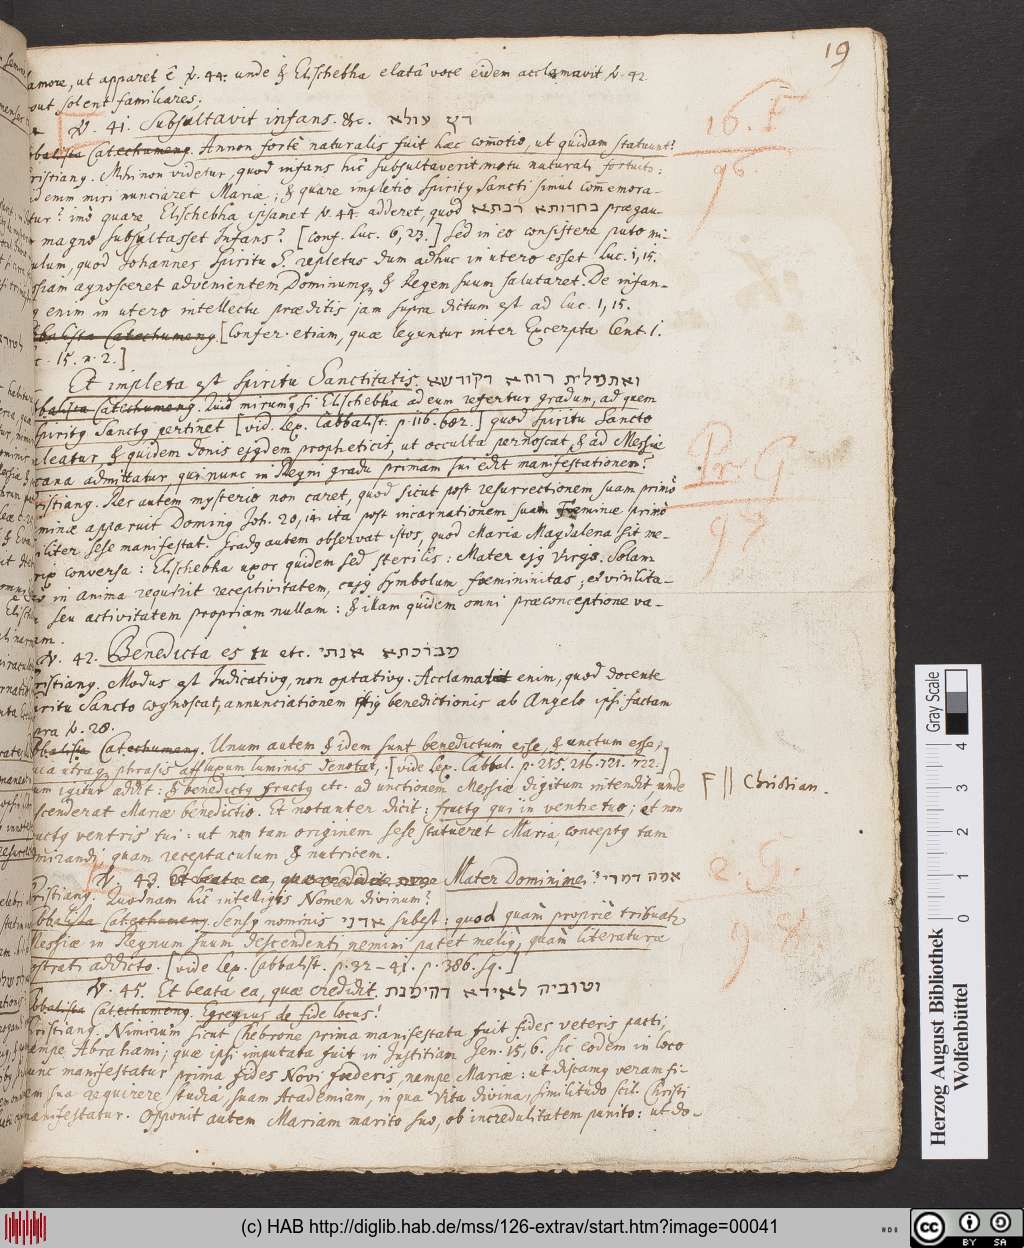 19
amore, ut apparet è v. 44. unde & Elischebha elatâ voce eidem acclamavit v. 42
out solent familiares.
v. 41. Subsultavit infans. &c. דץ עולא
Catechumeng. Annon fortè naturalis fuit hæc com̄otio, ut quidam statuunt?
ristiang. Mihi non videtur, quod infans hic subsultaverit motu naturali fortuito:
id enim miri nunciaret Mariæ; & quare impletio Spiritg Sancti simul com̄emora-
tur? imò quare Elischebha ipsamet v. 44. adderet, quod בחדותא רבתא prægau-
magno subsultasset Infans? [conf. Luc. 6, 23.] Sed in eo consistere puto mi-
ulum, quod Johannes Spiritu S. repletus dum adhuc in utero esset Luc. 1, 15.
ssiam agnosceret advenientem Dominumq, & Regem suum salutaret. De infan-
enim in utero intellectu præditis jam supra dictum est ad Luc. 1, 15.
Catechumeng. [Confer. etiam, quæ leguntur inter Excerpta Cent. 1.
c. 15. n. 2.]
Et impleta est Spiritu Sanctitatis. ואתמלית רוחא דקודשא
Catechumeng. Quid mirumq, si Elischebha ad eum refertur gradum, ad quem
Spiritg Sanctg pertinet [vid. Lex. Cabbalist. p. 116. 602.] quod Spiritu Sancto
leatur, & quidem donis ejgdem propheticis, ut occulta pernoscat, & ad Messiæ
cana admittatur, qui nunc in Regni gradu primam sui edit manifestationem?
ristiang. Res autem mysterio non caret, quod sicut post resurrectionem suam primò
minæ apparuit Doming Joh. 20, 14. ita post incarnationem suam Fœminæ primò
iliter sese manifestat. Gradg autem observat istos, quod Maria Magdalena sit me-
conversa: Elischebha uxor quidem sed sterilis: Mater ejg Virgo. Solam
in anima requirit receptivitatem, cujg symbolum fœmininitas; et virilita-
seu activitatem propriam nullam: & illam quidem omni præconceptione va-
am.
v. 42. Benedicta es tu etc. מברכתא אנתי
ristiang. Modus est Indicativg, non optativg. Acclamat enim, quod docente
iritu Sancto cognoscat, annunciationem benedictionis ab Angelo ipsi factam
pra v. 28.
Catechumeng. Unum autem & idem sunt benedictum esse, & unctum esse;
utraq, phrasis affluxum luminis denotat. [vide Lex. Cabbal. p. 215. 216. 721. 722.]
um igitur addit: & benedictg fructg etc. ad unctionem Messiæ digitum intendit unde
scenderat Mariæ benedictio. Et notanter dicit: fructg qui in ventre tuo; et non
uctg ventris tui: ut non tam originem sese statueret Maria, conceptg tam
mirandi, quam receptaculum & nutricem.
F || Christian.
v. 43. Et beata ea, quæ credidit Mater Domini mei? אמה דמרי
ristiang. Quodnam hic intelligis Nomen divinum?
Catechumeng. Sensg nominis אדני subest: quod quàm propriè tribuat
Messiæ in Regnum suum descendenti nemini patet meliq, quàm literaturæ
ostrati addicto. [vide Lex. Cabbalist. p. 32 - 41. p. 386. sq.]
v. 45. Et beata ea, quæ credidit. וטוביה לאידא דהימנת
Catechumeng. Egregius de fide locus!
ristiang. Nimirum sicut Hebrone prima manifestata fuit fides veteris pacti,
empe Abrahami; quæ ipsi imputata fuit in Justitiam Gen. 15, 6. sic eodem in loco
unc manifestatur prima fides Novi fœderis, nempe Mariæ: ut discamg veram fi-
em sua requirere studia, suam Academiam, in qua Vita divina, similitudo scil. Christi
manifestatur. Opponit autem Mariam marito suo, ob incredulitatem punito: ut do-
16. F
96.
Pr. G
97
2. G.
98.
Gray Scale
0 1 2 3 4
Herzog August Bibliothek
Wolfenbüttel
(c) HAB http://diglib.hab.de/mss/126-extrav/start.htm?image=00041
cc BY SA